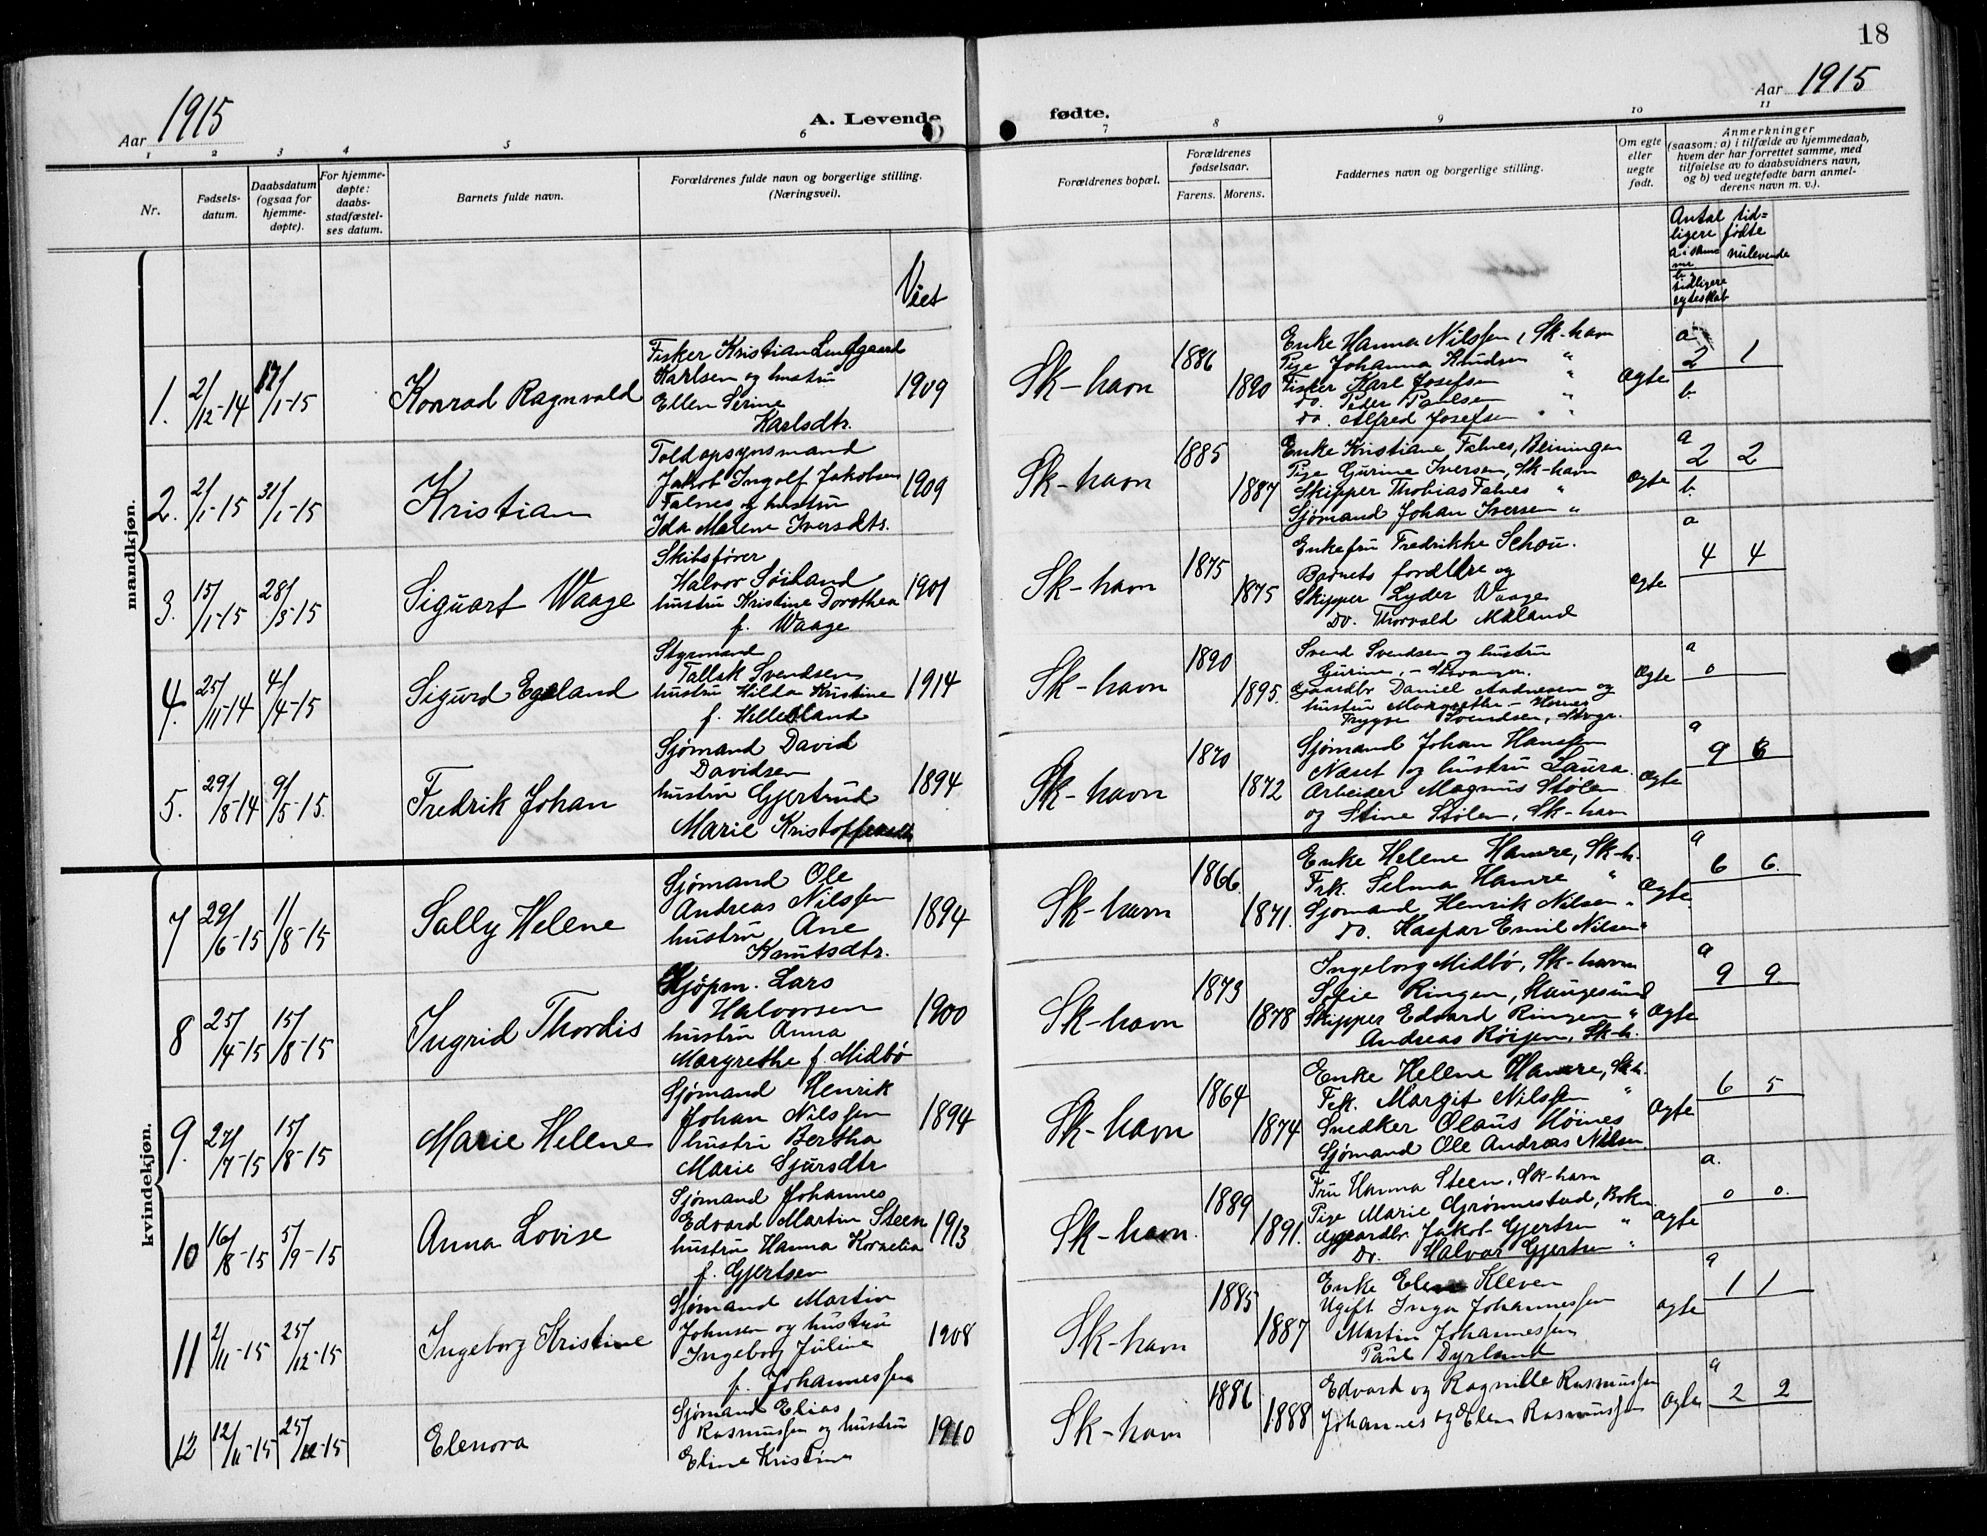 18
Aar 1915
A. Levende fødte.
Aar 1915
1 2 3 4 5 6 7 8 9 10 11
Nr.
Fødsels-
datum.
Daabsdatum
(ogsaa for
hjemme-
døpte).
For hjemme-
døpte:
daabs-
stadfæstel-
ses datum.
Barnets fulde navn.
Forældrenes fulde navn og borgerlige stilling.
(Næringsvei).
Forældrenes bopæl.
Forældrenes
fødselsaar.
Farens. Morens.
Faddernes navn og borgerlige stilling.
Om egte
eller
uegte
født.
Anmerkninger
(saasom: a) i tilfælde av hjemmedaab,
hvem der har forrettet samme, med
tilføielse av to daabsvidners navn,
og b) ved uegtefødte barn anmel-
derens navn m. v.).
Antal tid=
ligere fødte
nulevende
b.
tidligere
egteskab
Viet
mandkjøn.
1. 2/12-14 17/1-15
Konrad Ragnvald
Fisker Kristian Lindgaard
Karlsen og hustru
Ellen Serine
Karlsdtr.
1909
Sk-havn
1886 1890
Enke Hanna Nilssen, Sk-havn
Pige Johanna Knudsen "
Fisker Karl Josefsen "
Do. Peder Paulsen "
Do. Alfred Josefsen "
Ægte
a 2 1
b.
2. 2/1-15 31/1-15
Kristian
Toldopsynsmand
Jakob Ingolf Jakobsen
Falnes og hustru
Ida Malene Iversdtr.
1909
Sk-havn
1885 1887
Enke Kristiane Falnes, Beiningen
Pige Gurine Iversen, Sk-havn
Skipper Thobias Falnes "
Sjømand Johan Iversen "
Ægte
a 2 2
b.
3. 15/1-15 28/3-15
Siguart Waage
Skibsfører
Halvor Søiland
hustru Kristine Dorothea
f. Waage
1901
Sk-havn
1875 1875
Enkefru Fredrikke Schou.
Barnets forældre og
Skipper Lyder Waage
Do. Thorvald Måland
Ægte
a 4 4
4. 25/11-14 4/4-15
Sigurd Egeland
Styrmand
Tallak Svendsen
hustru Hilda Kristine
f. Helleland
1914
Sk-havn
1890 1895.
Svend Svendsen og hustru
Gurine, -
Gaardbr. Daniel Aadnesen og
hustru Margrethe -
Trygve Svendsen,
Ægte
a 0
5. 29/8-14 9/5-15.
Fredrik Johan
Sjømand David
Davidsen
hustru Gjertrud
Marie
1894
Sk-havn
1870 1872
Sjømand Johan Hanssen
Næset og hustru Laura.
Arbeider Magnus Stølen
og Stine Stølen, Sk-havn
Ægte
a 9
kvindekjøn.
7 29/6-15 1/8-15
Sally Helene
Sjømand Ole
Andreas Nilssen
hustru Ane
Knutsdtr.
1894
Sk-havn
1866. 1871.
Enke Helene Hamre, Sk-h.
Frk. Selma Hamre "
Sjømand Henrik Nilsen "
Do. Kaspar Emil Nilsen "
Ægte.
a 6 6.
8 25/4-15 15/8-15
Ingrid Thordis
Kjøpm. Lars
Halvorsen
hustru Anna
Margrethe f. Midbø
1900
Sk-havn
1873 1878
Ingeborg Midbø, Sk-havn
Sofie Ringen, Haugesund
Skipper Edvard Ringen "
Andreas Sk-h.
Ægte
a 9 9.
9. 27/7-15 15/8-15
Marie Helene
Sjømand Henrik
Johan Nilssen
hustru Bertha
Marie Sjursdtr
1894
Sk-havn
1864 1874
Enke Helene Hamre, Sk-h.
Frk. Margit Nilssen "
Snedker Olaus Høines
Sjømand Ole Andreas Nilsen
Ægte
6 5
10 16/8-15 5/9-15
Anna Lovise
Sjømand Johannes
Edvard Martin Steen
hustru Hanna Kornelia
f. Gjertsen
1913
Sk-havn.
1889 1891.
Fru Hanna Steen, Sk-havn
Pige Marie Grønnestad, Bokn
Gaardbr. Jakob Gjertsen "
Do. Halvar Gjertsen "
Ægte
a. 0 0.
11 2/11-15 25/12-15
Ingeborg Kristine
Sjømand Martin
Johnsen og hustru
Ingeborg Juline
f. Johannessen
1908
Sk-havn
1885 1887
Enke Elen Kleven
Ugift Inga Johannessen
Martin Johannessen
Paul Dyrland
Ægte
a 1 1
12 12/11-15 25/12-15
Elenora
Sjømand Elias
Rasmussen og hustru
Eline Kristine
1910
Sk-havn
1886 1888
Edvard og Ragnille Rasmussen
Johannes og Elen Rasmussen
Ægte
a 2 2